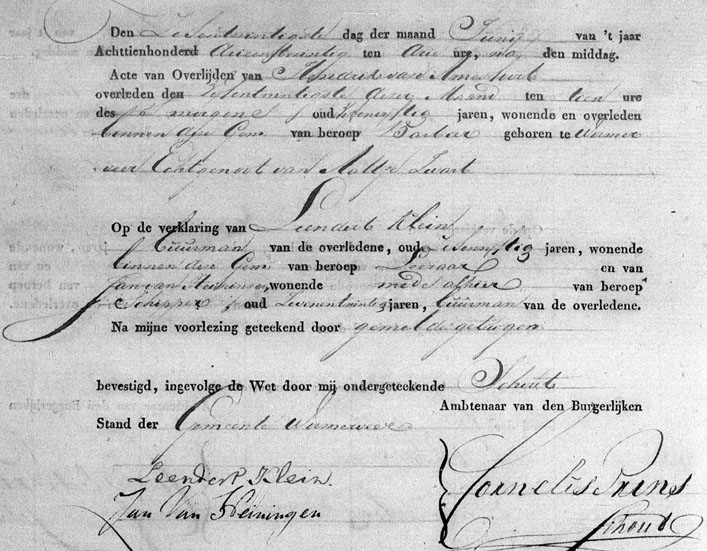 Den Zesentwintigste dag der maand Junij van 't jaar
Achttienhonderd drieentwintig ten drie ure, na den middag.
Acte van Overlijden van
overleden den dezer Maand ten tien ure
des morgens oud jaren, wonende en overleden
binnen deze Gem van beroep geboren te Wormer
veer Echtgenoot van Zwart
Op de verklaring van Leendert Klein
buurman van de overledene, oud jaren, wonende
binnen deze Gem van beroep Leeraar en van
Jan van Heiningen wonende mede alhier van beroep
Schipper, oud Zevenentwintig jaren, buurman van de overledene.
Na mijne voorlezing geteekend door gemelde getuigen
bevestigd, ingevolge de Wet door mij ondergeteekende Schout
Ambtenaar van den Burgerlijken
Stand der Gemeente Wormerveer
Leendert Klein.
Jan Van Heiningen
Cornelis Prins
Schout